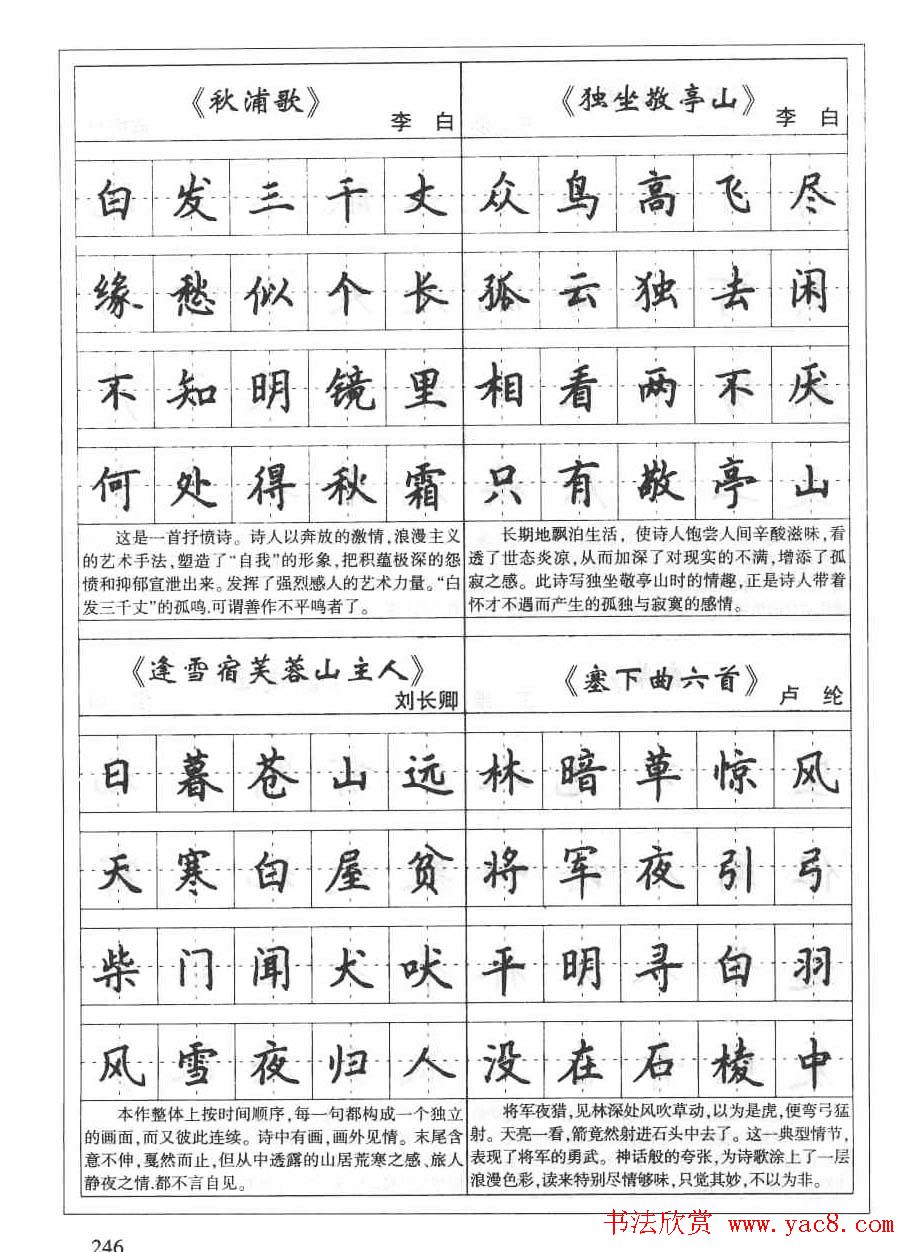 《秋浦歌》
李 白
白发三千丈
缘愁似个长
不知明镜里
何处得秋霜
这是一首抒愤诗。诗人以奔放的激情，浪漫主义
的艺术手法，塑造了“自我”的形象，把积蕴极深的怨
愤和抑郁宣泄出来。发挥了强烈感人的艺术力量。“白
发三千丈”的孤鸣，可谓善作不平鸣者了。
《独坐敬亭山》
李 白
众鸟高飞尽
孤云独去闲
相看两不厌
只有敬亭山
长期地飘泊生活，使诗人饱尝人间辛酸滋味，看
透了世态炎凉，从而加深了对现实的不满，增添了孤
寂之感。此诗写独坐敬亭山时的情趣，正是诗人带着
怀才不遇而产生的孤独与寂寞的感情。
《逢雪宿芙蓉山主人》
刘长卿
日暮苍山远
天寒白屋贫
柴门闻犬吠
风雪夜归人
本作整体上按时间顺序，每一句都构成一个独立
的画面，而又彼此连续。诗中有画，画外见情。末尾含
意不伸，戛然而止，但从中透露的山居荒寒之感、旅人
静夜之情，都不言自见。
《塞下曲六首》
卢 纶
林暗草惊风
将军夜引弓
平明寻白羽
没在石棱中
将军夜猎，见林深处风吹草动，以为是虎，便弯弓猛
射。天亮一看，箭竟然射进石头中去了。这一典型情节，
表现了将军的勇武。神话般的夸张，为诗歌涂上了一层
浪漫色彩，读来特别尽情够味，只觉其妙，不以为非。
书法欣赏 www.yac8.com
246